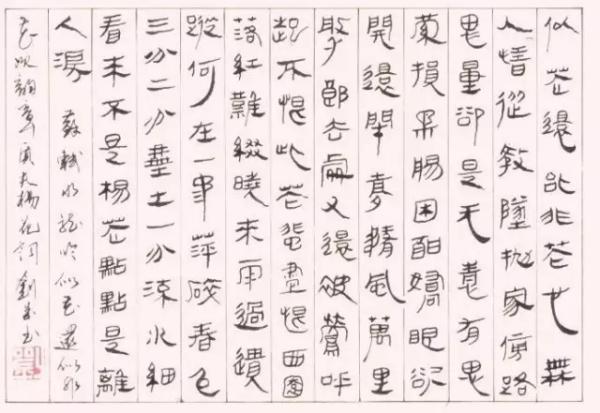 似花還似非花也無
人惜從教墜拋家傍路
思量卻是无意有思
損柔腸困酣嬌眼欲
開還閉夢隨風萬里
尋郎去處又還被鶯呼
起不恨此花飛盡恨西園
落紅難綴曉來雨過遺
蹤何在一萍碎春色
三分二分塵土一分流水細
看來不是楊花點點是離
人淚 蘇軾水龍吟似花還似非
花次韻章質夫楊花詞劉书